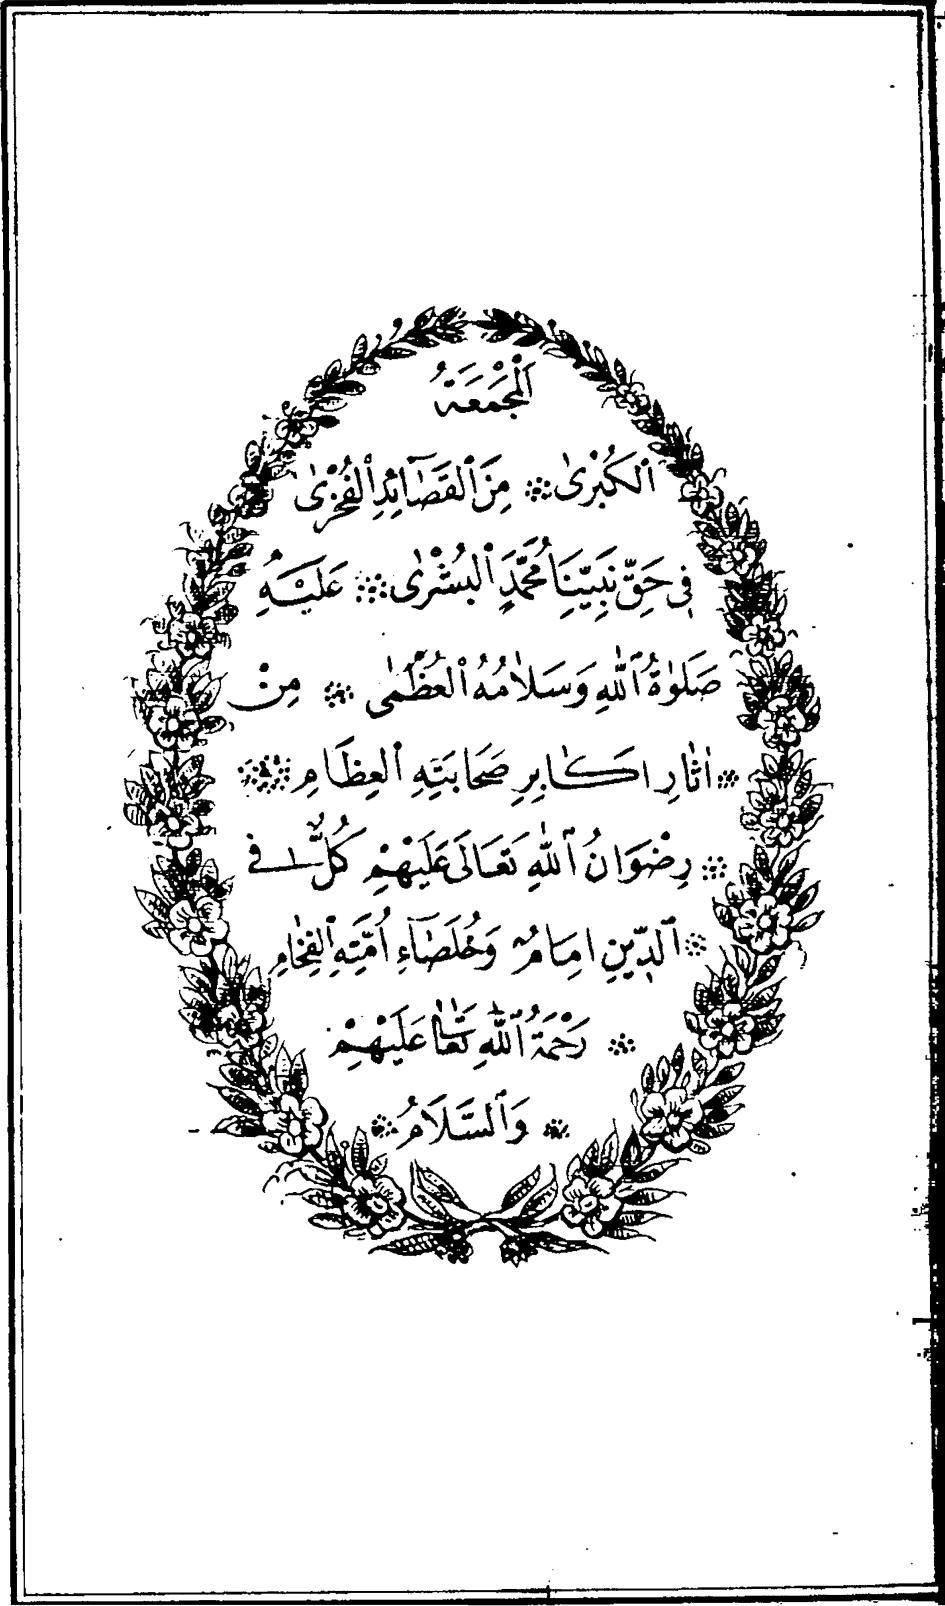 اَلْمَجْمَعَةُ
اَلْكُبْرٰى مِنَ ٱلْقَصَٓائِدِ ٱلْفُخْرٰى
فِى حَقِّ نَبِيِّنَا مُحَمَّدٍ ٱلْبُشْرٰى عَلَيْهِ
صَلٰوةُ ٱللّٰهِ وَسَلَامُهُ ٱلْعُظْمٰى مِنْ
اٰثَارِ اَكَابِرِ صَحَابَتِهِ ٱلْعِظَامِ
رِضْوَانُ ٱللّٰهِ تَعَالَى عَلَيْهِمْ كُلٌّ فِى
ٱلدِّينِ اِمَامُ وَخُلَصَٓاءِ اُمَّتِهِ ٱلْفِخَامِ
رَحْمَةُ ٱللّٰهِ تَعَالٰى عَلَيْهِمْ
وَٱلسَّلَامُ